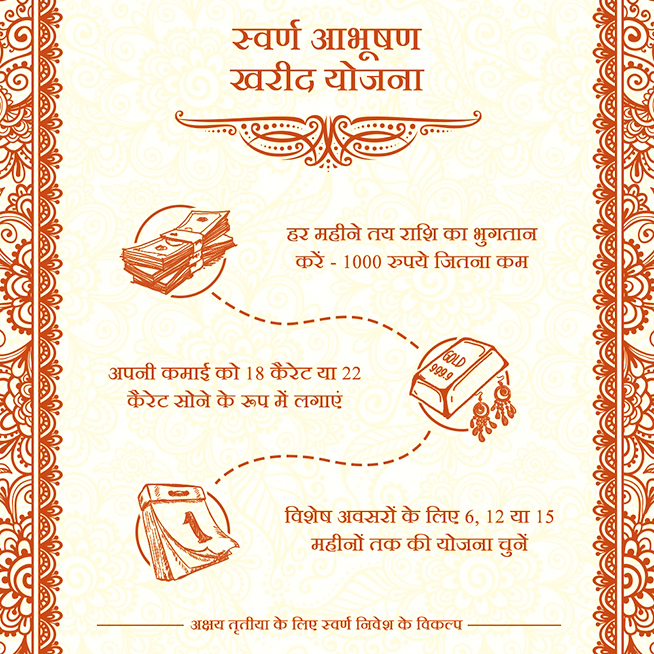 स्वर्ण आभूषण
खरीद योजना
हर महीने तय राशि का भुगतान
करें - 1000 रुपये जितना कम
GOLD
999.9
अपनी कमाई को 18 कैरेट या 22
कैरेट सोने के रूप में लगाएं
1
विशेष अवसरों के लिए 6, 12 या 15
महीनों तक की योजना चुनें
अक्षय तृतीया के लिए स्वर्ण निवेश के विकल्प